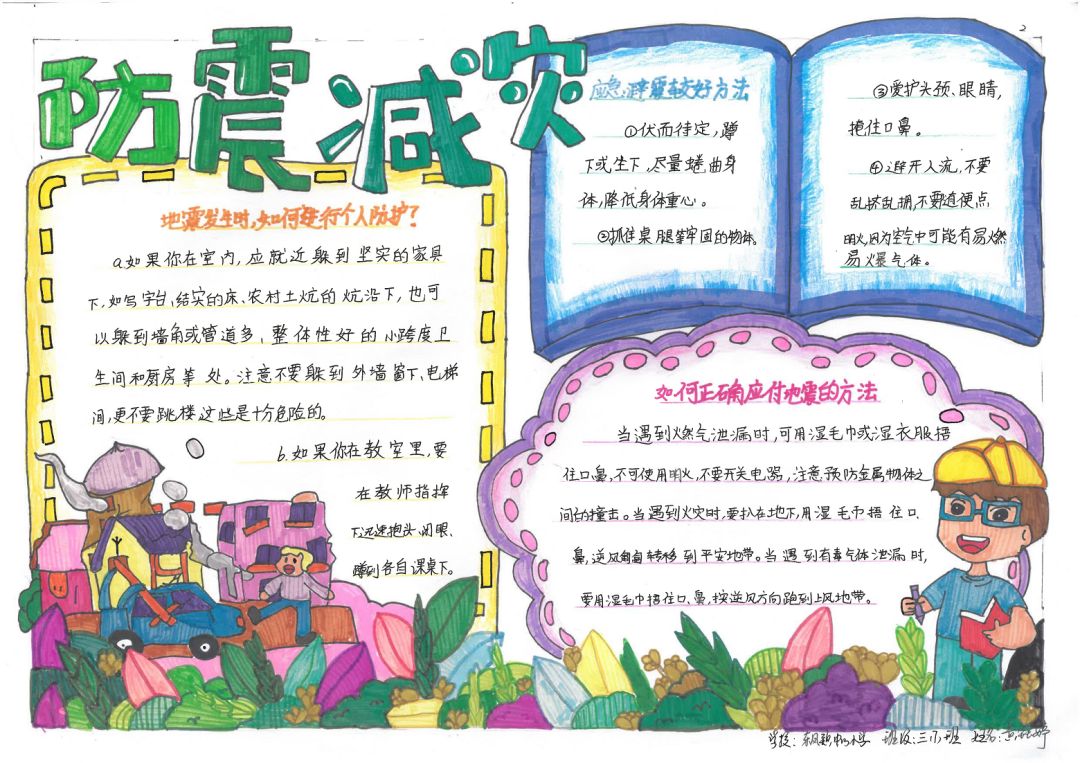 防震减灾
地震发生时,如何进行个人防护?
a.如果你在室内,应就近躲到坚实的家具
下,如写字台、结实的床、农村土炕的炕沿下,也可
以躲到墙角或管道多、整体性好的小跨度卫
生间和厨房等处。注意不要躲到外墙窗下、电梯
间,更不要跳楼这些是十分危险的。
b.如果你在教室里,要
在教师指挥
下迅速抱头、闭眼、
蹲到各自课桌下。
应急避震较好方法
①伏而待定,蹲
下或坐下,尽量蜷曲身
体,降低身体重心。
②抓住桌腿等牢固的物体。
③爱护头颈、眼睛,
掩住口鼻。
④避开人流,不要
乱挤乱拥,不要随便点
明火,因为空气中可能有易燃
易爆气体。
如何正确应付地震的方法
当遇到燃气泄漏时,可用湿毛巾或湿衣服捂
住口、鼻,不可使用明火,不要开关电器,注意预防金属物体之
间的撞击。当遇到火灾时,要趴在地下,用湿毛巾捂住口、
鼻,逆风匍匐转移到平安地带。当遇到有毒气体泄漏时,
要用湿毛巾捂住口、鼻,按逆风方向跑到上风地带。
2
学校: 班级:三 班 姓名: